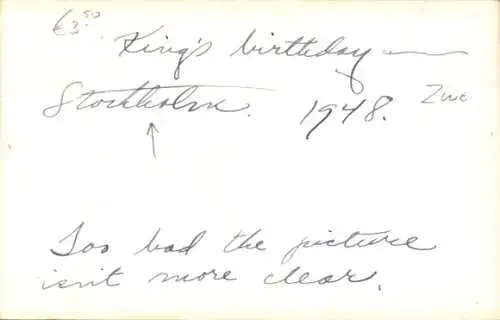 €3.50
King's birthday —
Stockholm. 1948. Zwe
Too bad the picture
isn't more clear.